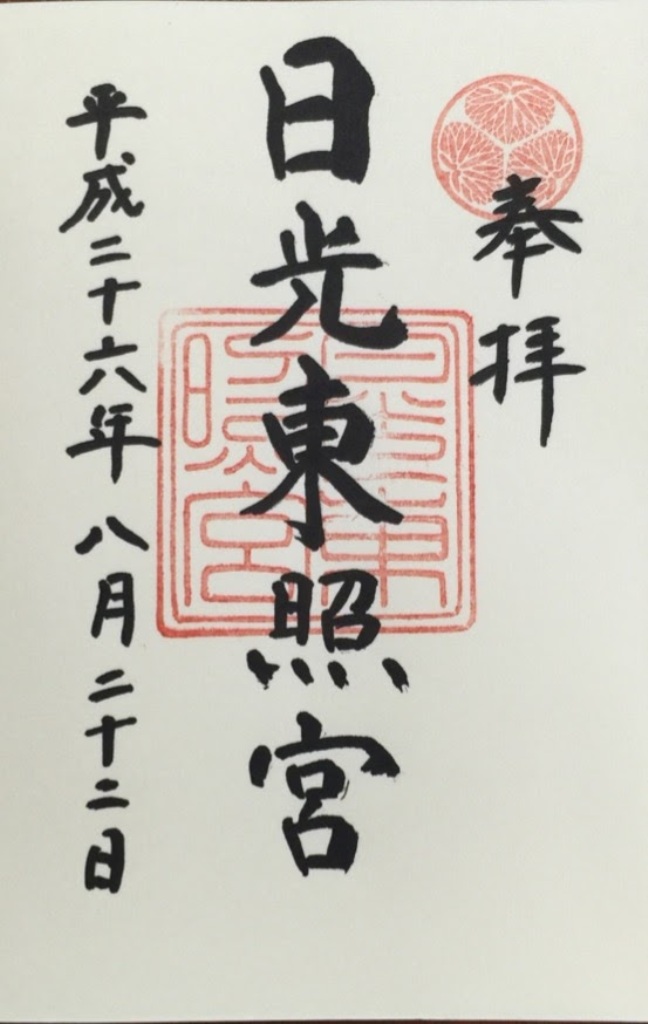 奉拝
日光東照宮
日光東照宮
平成二十六年八月二十二日